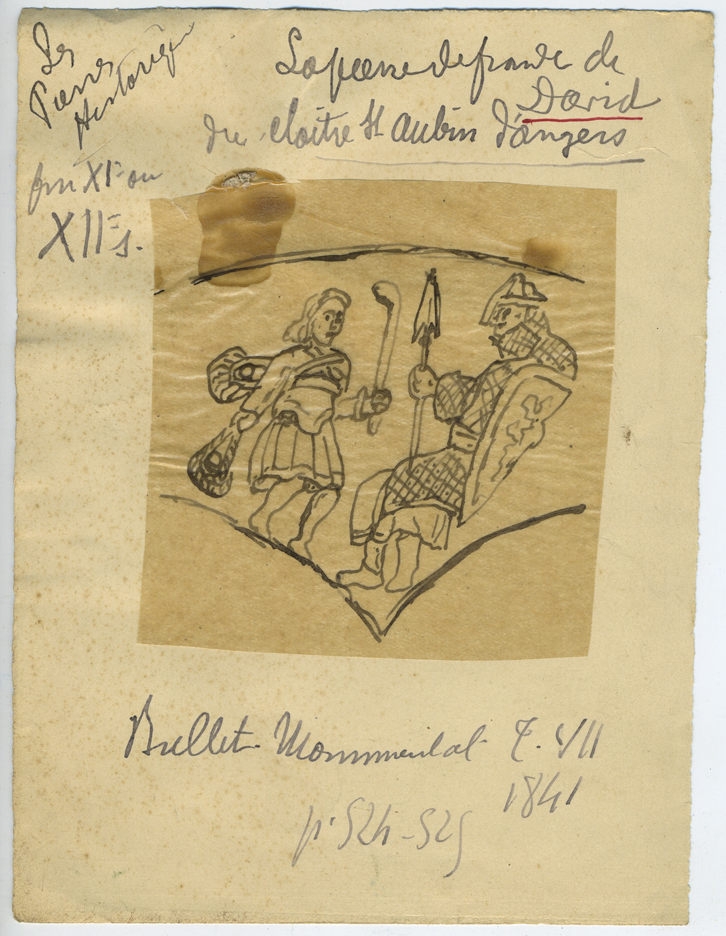 Les
Pierres
Historiques
La pierre de fronde de
David
du cloître St Aubin d'Angers
fin XIe ou
XIIe s.
Bullet. Monumental T. VII
1841
p. 524-525